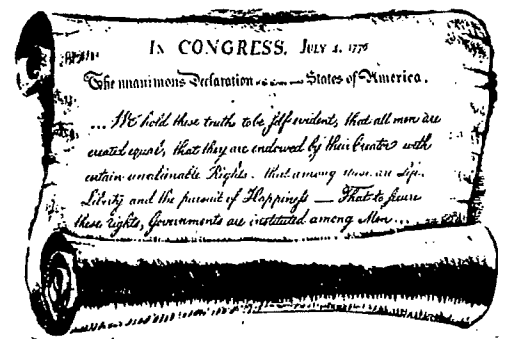 IN CONGRESS, JULY 4, 1776
The unanimous Declaration States of America.
... We hold these truths to be self evident, that all men are
created equal, that they are endowed by their Creator with
certain unalienable Rights. that among these are Life
Liberty and the pursuit of Happiness — That to secure
these rights, Governments are instituted among Men...